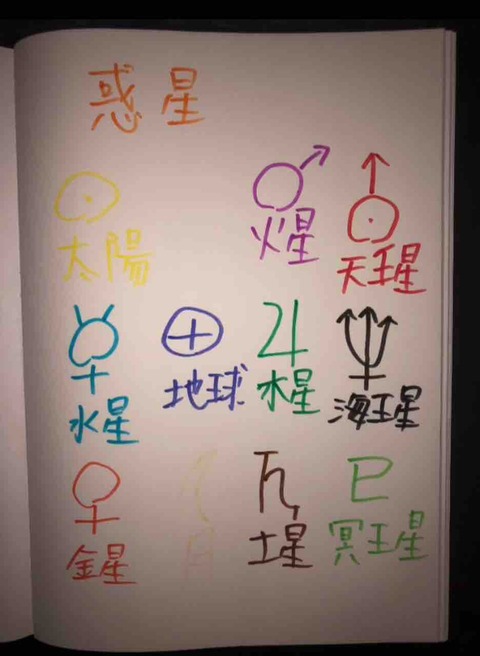 惑星
太陽
火星
天王星
水星
地球
木星
海王星
金星
月
土星
冥王星